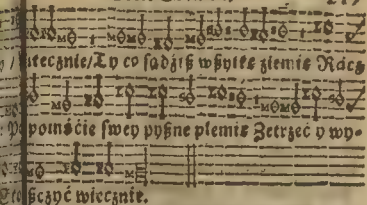 y / ſkutecznie/Ty co ſądźiß wßytkę źiemię Rácż
pomśćie ſwey pyßne plemię Zetrzeć y wy-
ßczyć wiecznie.